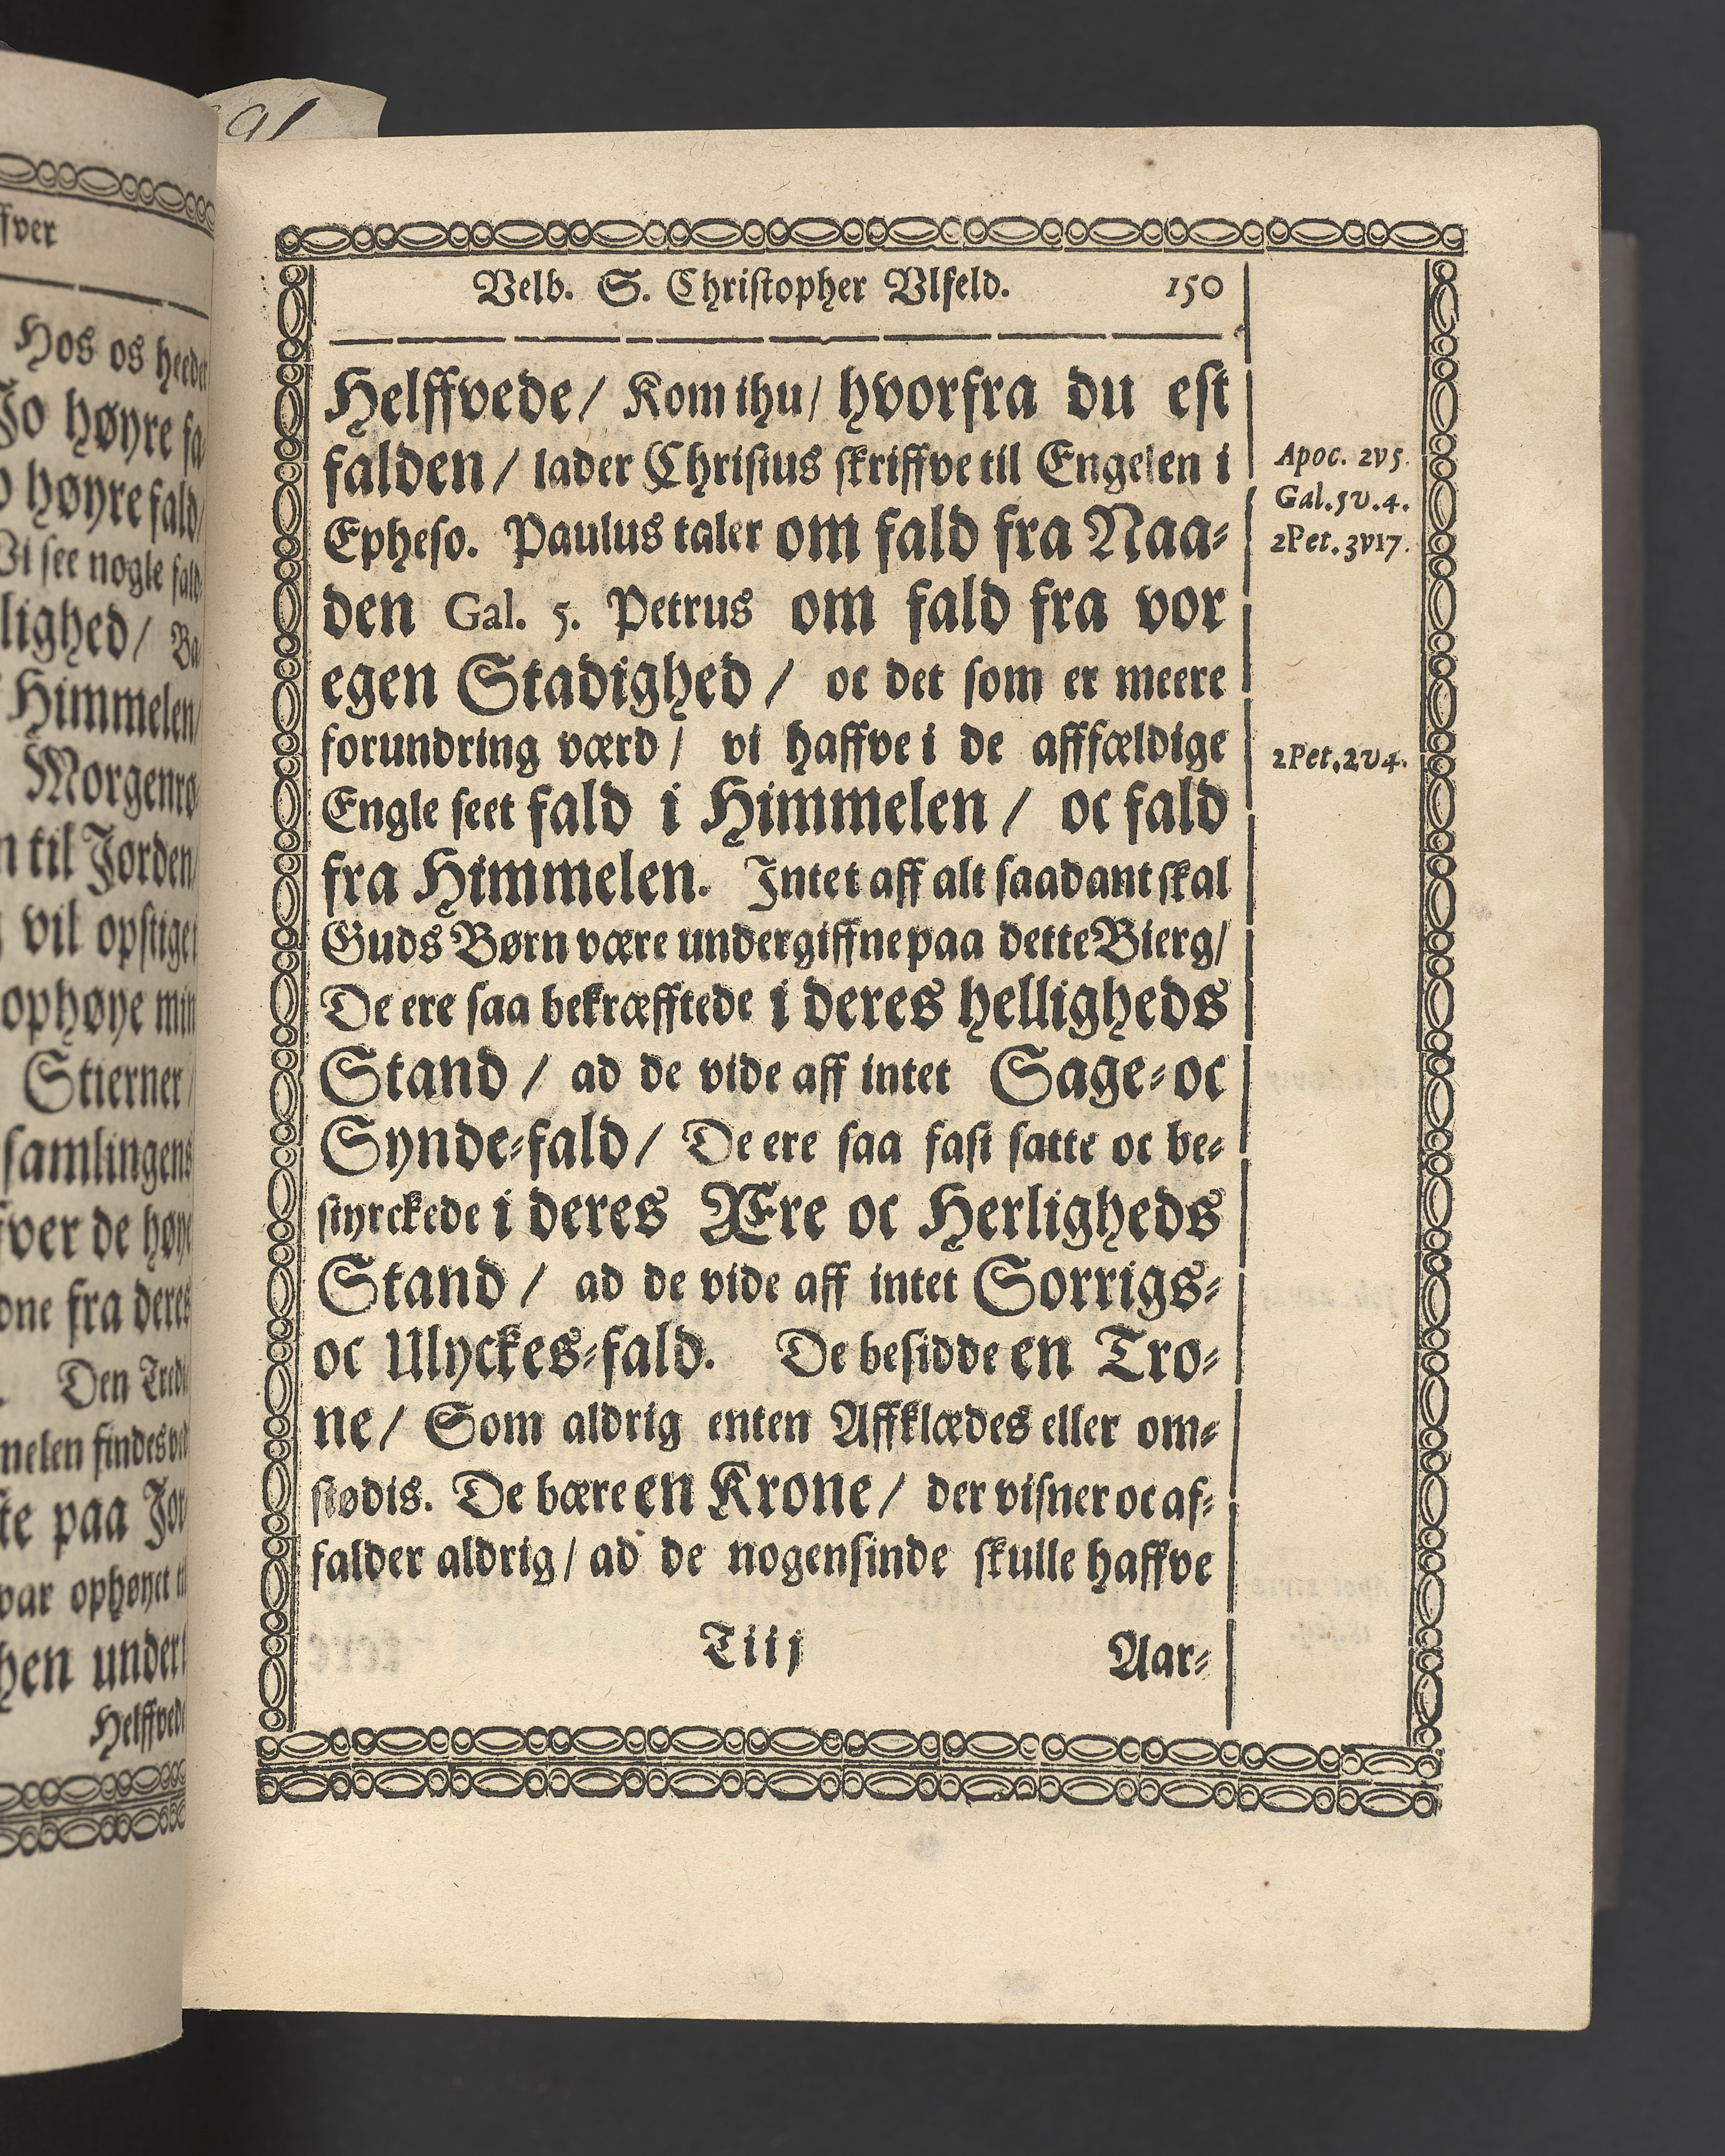 91
fver
Hos os heeder
Jo høyre fa-
høyre fald/
Vi see nogle fald
lighed/ Ba
Himmelen/
Morgenrø
n til Jorden/
vil opstige
ophøye min
Stierner/
samlingens
fver de høye
fra deres
Den Tredi
findes
te paa Jor
var ophøyet
hen under
Helffvede
Velb. S. Christopher Ulfeld. 150
Helffvede/ Kom ihu/ hvorfra du est
falden/ lader Christus skriffve til Engelen i
Epheso. Paulus taler om fald fra Naa-
den Gal. 5. Petrus om fald fra vor
egen Stadighed/ oc det som er meere
forundring værd/ vi haffve i de afffældige
Engle seet fald i Himmelen/ oc fald
fra Himmelen. Intet aff alt saadant skal
Guds Børn være undergiffne paa dette Bierg/
De ere saa bekræfftede i deres helligheds
Stand/ ad de vide aff intet Sage-oc
Synde-fald/ De ere saa fast satte oc be-
styrckede i deres Ære oc Herligheds
Stand/ ad de vide aff intet Sorrigs-
oc Ulyckes-fald. De besidde en Tro-
ne/ Som aldrig enten Affklædes eller om-
stødis. De bære en Krone/ der visner oc af-
falder aldrig/ ad de nogensinde skulle haffve
Tiij Aar-
Apoc. 2v5.
Gal.5v.4.
2Pet.3v17.
2Pet.2v4.